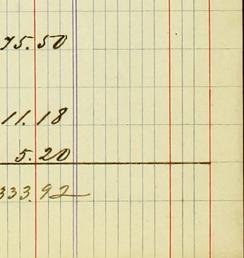 75.50
11.18
5.20
333.92